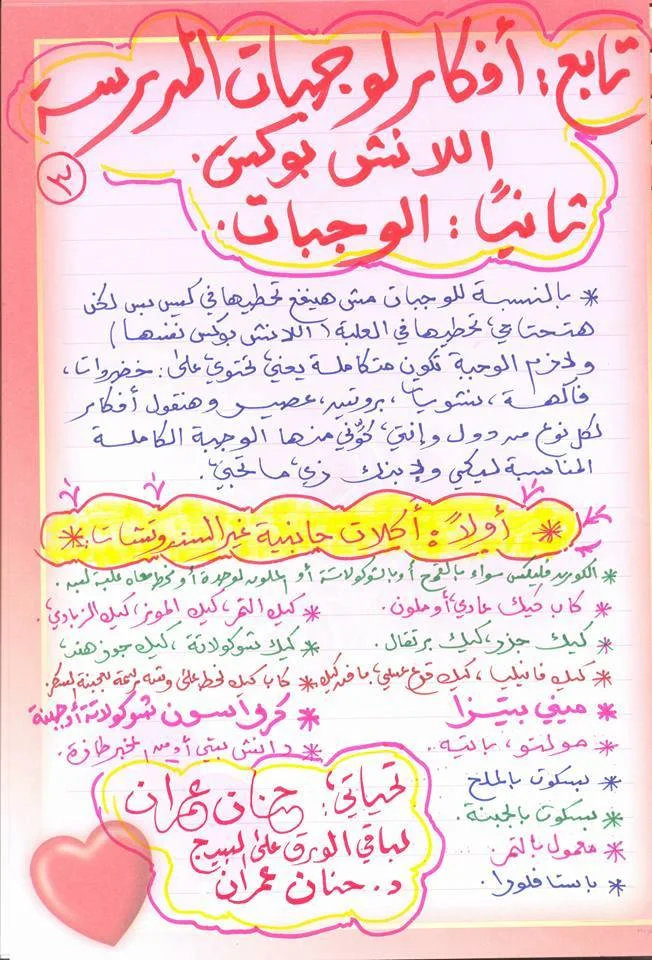 تابع: أفكار لوجبات المدرسة
اللانش بوكس.
٣
ثانيًا: الوجبات.
* بالنسبة للوجبات مش هينفع تحطيها في كيس بس لكن
هتحتاجي تحطيها في العلبة (اللانش بوكس نفسها)
ولازم الوجبة تكون متكاملة يعني تحتوي على: خضروات،
فاكهة، نشويات، بروتين، عصير وهنقول أفكار
لكل نوع من دول وإنتي كوّني منها الوجبة الكاملة
المناسبة ليكي ولابنك زي ما تحبي.
* أولاً: أكلات جانبية غير السندوتشات: *
* الكورن فليكس سواء بالقمح أو بالشوكولاتة أو الملون لوحده أو نحط معاه علبة لبن.
* كاب كيك عادي أو ملون. * كيك التمر، كيك الموز، كيك الزبادي.
* كيك جزر، كيك برتقال. * كيك شوكولاتة، كيك جوز هند.
* كيك فانيليا، كيك قرع عسلي، * كاب كيك نحط على وشه
* ميني بيتزا * كرواسون شوكولاتة أو جبنة
* مولتو، باتيه. * دانش بيتي أو من المخبز طازة.
* بسكوت بالملح
* بسكوت بالجبنة.
* معمول بالتمر.
* باستا فلورا.
تحياتي: حنان عمران
لباقي الورق على البيدج
د. حنان عمران